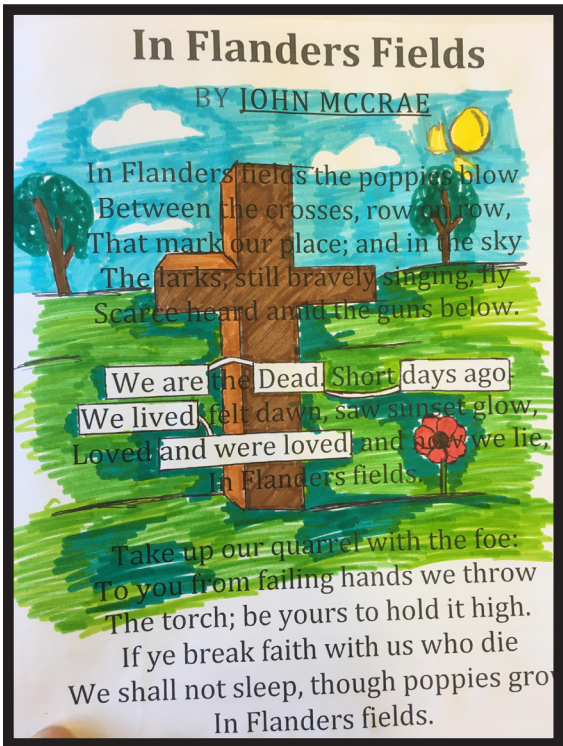 In Flanders Fields
BY JOHN MCCRAE
In Flanders fields the poppies blow
Between the crosses, row on row,
That mark our place; and in the sky
The larks, still bravely singing, fly
Scarce heard amid the guns below.
We are the Dead. Short days ago
We lived, felt dawn, saw sunset glow,
Loved and were loved, and now we lie,
In Flanders fields.
Take up our quarrel with the foe:
To you from failing hands we throw
The torch; be yours to hold it high.
If ye break faith with us who die
We shall not sleep, though poppies grow
In Flanders fields.